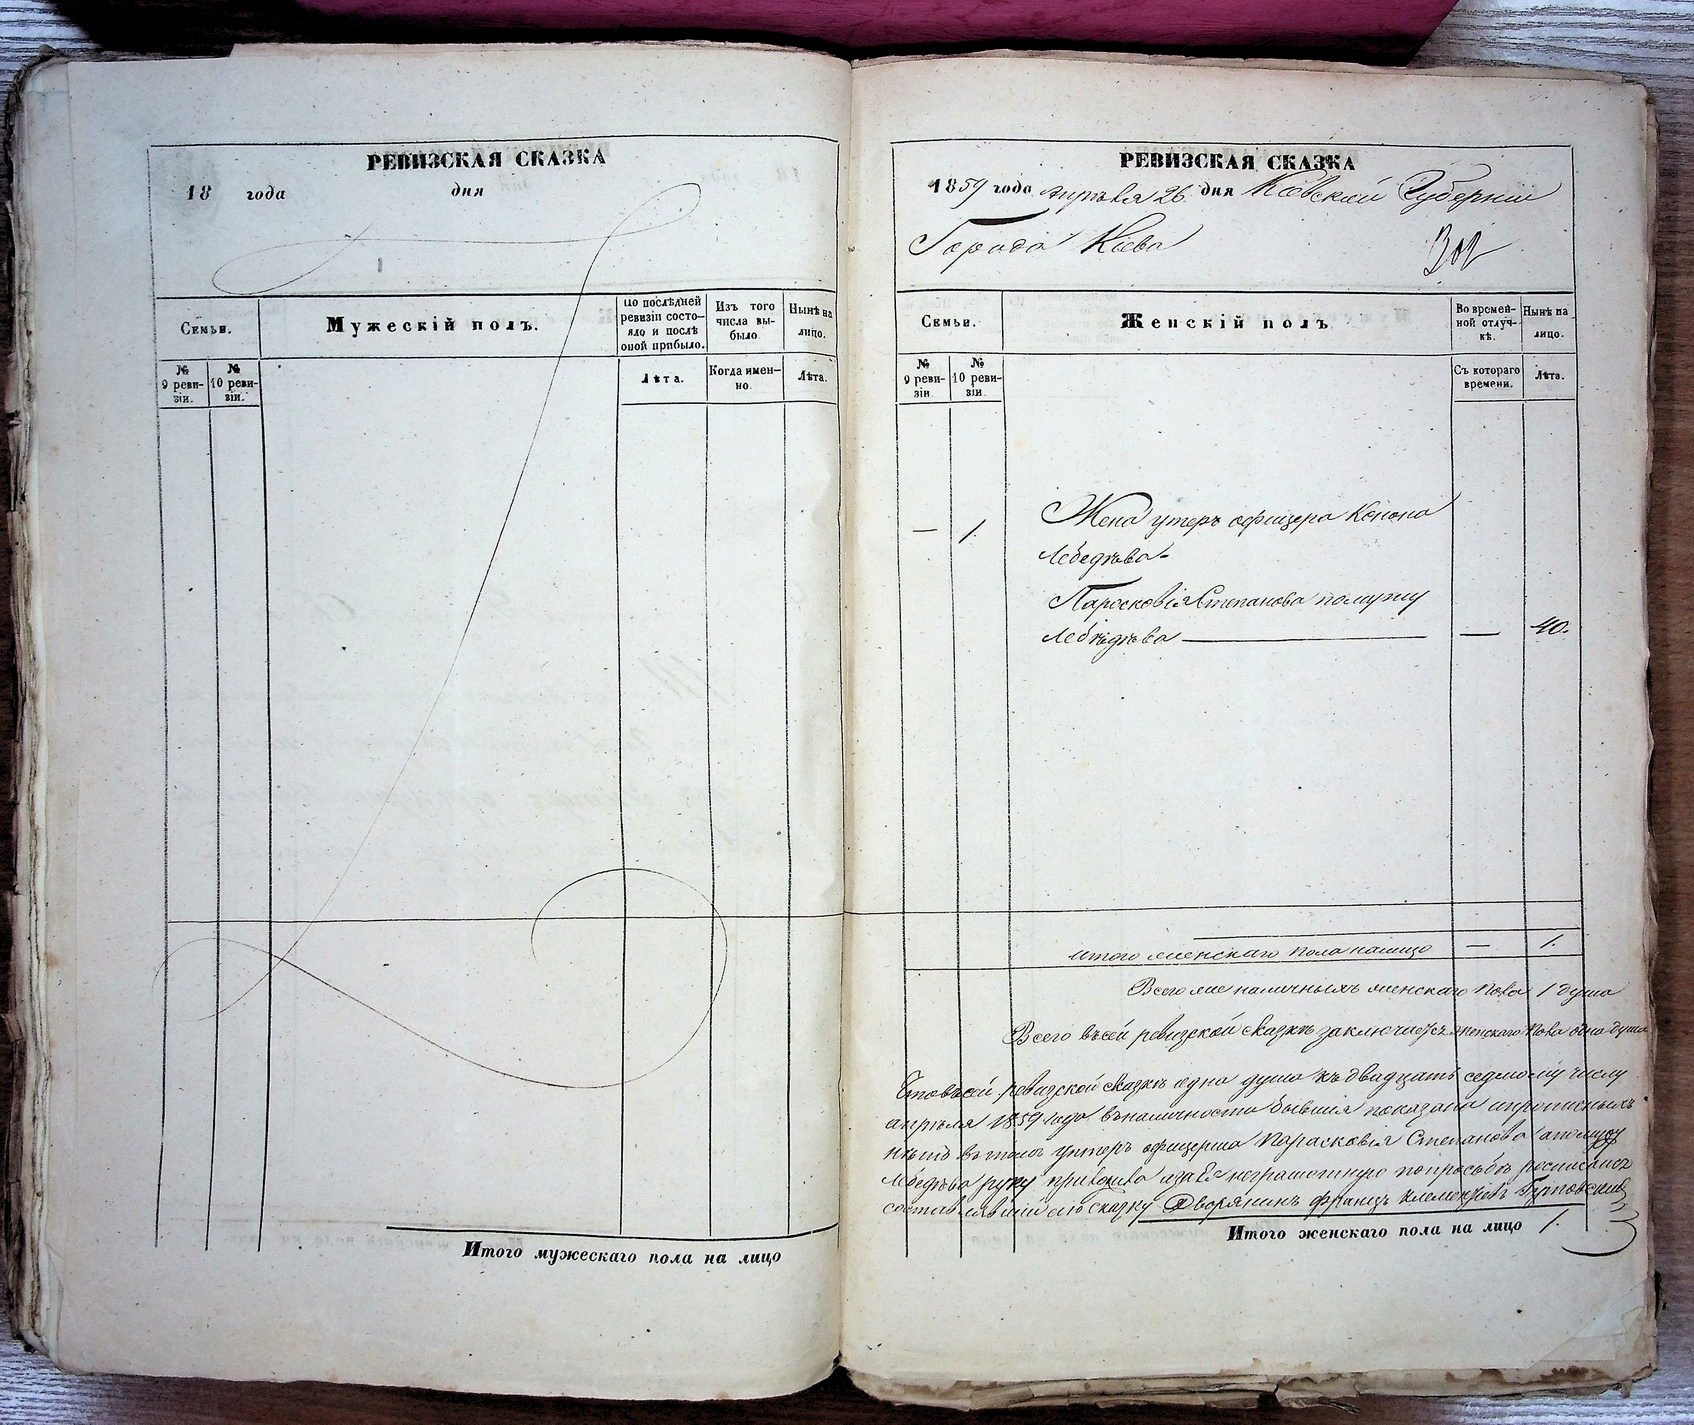 РЕВИЗСКАЯ СКАЗКА
18 года дня
Семьи.
Мужескій полъ.
По послѣдней ревизіи состояло и послѣ оной прибыло.
Изъ того числа выбыло
Нынѣ на лицо.
№ 9 ревизіи.
№ 10 ревизіи.
Лѣта.
Когда именно.
Лѣта.
Итого мужескаго пола на лицо
РЕВИЗСКАЯ СКАЗКА
1859 года апрѣля 26 дня Кіевской Губерніи
Города Кіева
Семьи.
Женскій полъ.
Во временной отлучкѣ.
Нынѣ на лицо.
№ 9 ревизіи
№ 10 ревизіи
Съ котораго времени.
Лѣта.
— 1. Жена унтеръ офицера Конона
Лебедѣва
Парасковія Степанова по мужу
Лебѣдѣва — — 40.
Итого женскаго пола на лицо — 1.
Всего наличныхъ женскаго пола 1 душа
Всего въ сей ревизской сказкѣ заключается женскаго пола одна душа
Что въ сей ревизской сказкѣ одна душа къ двадцать седмому числу
апрѣля 1859 года въ наличности бывшая показана и прописныхъ
нѣтъ въ томъ унтеръ офицерша Парасковія Степанова а по мужу
Лебедѣва руку приложила а за Ее неграмотную по просьбѣ росписался
составлявшій сію сказку Дворянинъ Францъ
Итого женскаго пола на лицо 1.